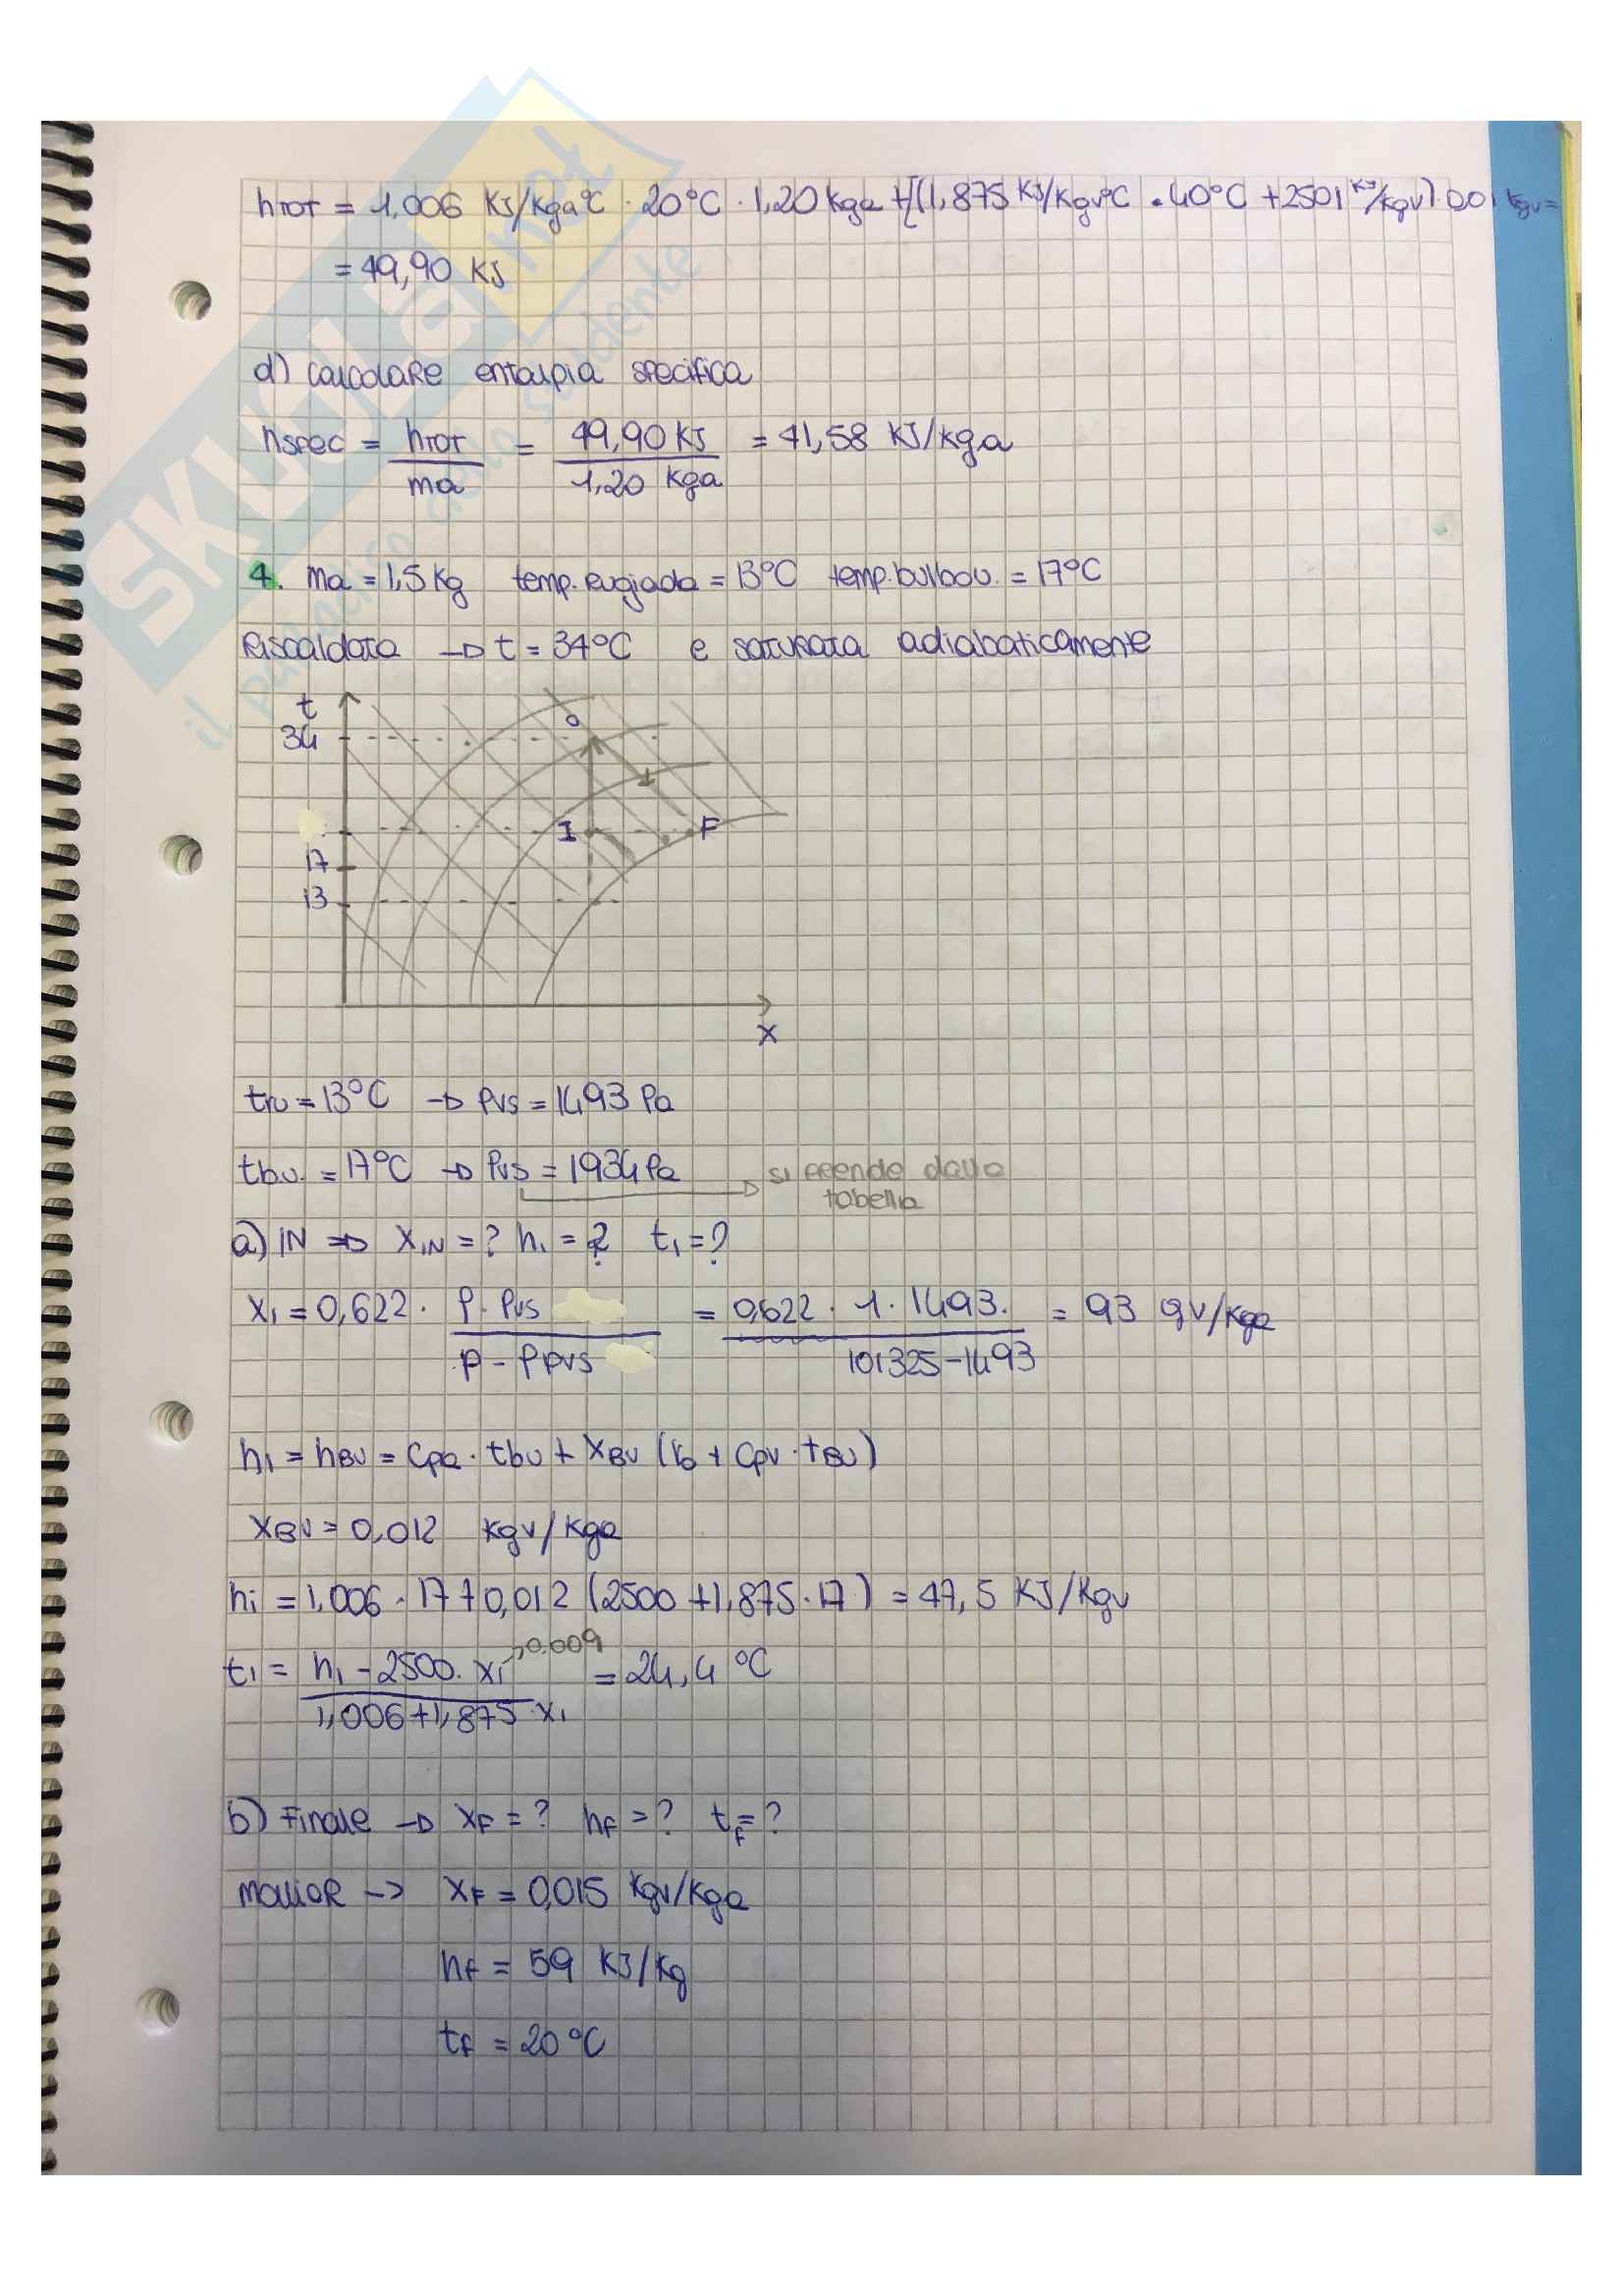 hTOT = 1,006 KJ/kga°C · 20°C · 1,20 kga + [(1,875 KJ/kgv°C · 40°C + 2501 KJ/kgv) · 0,01 kgv =
= 49,90 KJ
d) calcolare entalpia specifica
hspec = hTOT / ma = 49,90 KJ / 1,20 kga = 41,58 KJ/kga
4. ma = 1,5 kg temp. rugiada = 13°C temp. bulbo u. = 17°C
Riscaldata → t = 34°C e saturata adiabaticamente
t
34
O
I F
17
13
X
tru = 13°C → Pvs = 1493 Pa
tb.u. = 17°C → Pvs = 1934 Pa → si prende dalla
tabella
a) IN ⇒ XIN = ? h1 = ? t1 = ?
X1 = 0,622 · φ · Pvs / p - φ pvs = 0,622 · 1 · 1493 / 101325 - 1493 = 93 gv/kga
h1 = hBU = Cpa · tbu + XBU (r0 + Cpv · tBU)
XBU = 0,012 kgv/kga
hi = 1,006 · 17 + 0,012 (2500 + 1,875 · 17) = 47,5 KJ/kgv
t1 = h1 - 2500 · X1 → 0.009 / 1,006 + 1,875 · X1 = 24,4 °C
b) Finale → XF = ? hF = ? tF = ?
mollier → XF = 0,015 kgv/kga
hF = 59 KJ/kg
tF = 20°C
SKUOLA.net
il paradiso dello studente